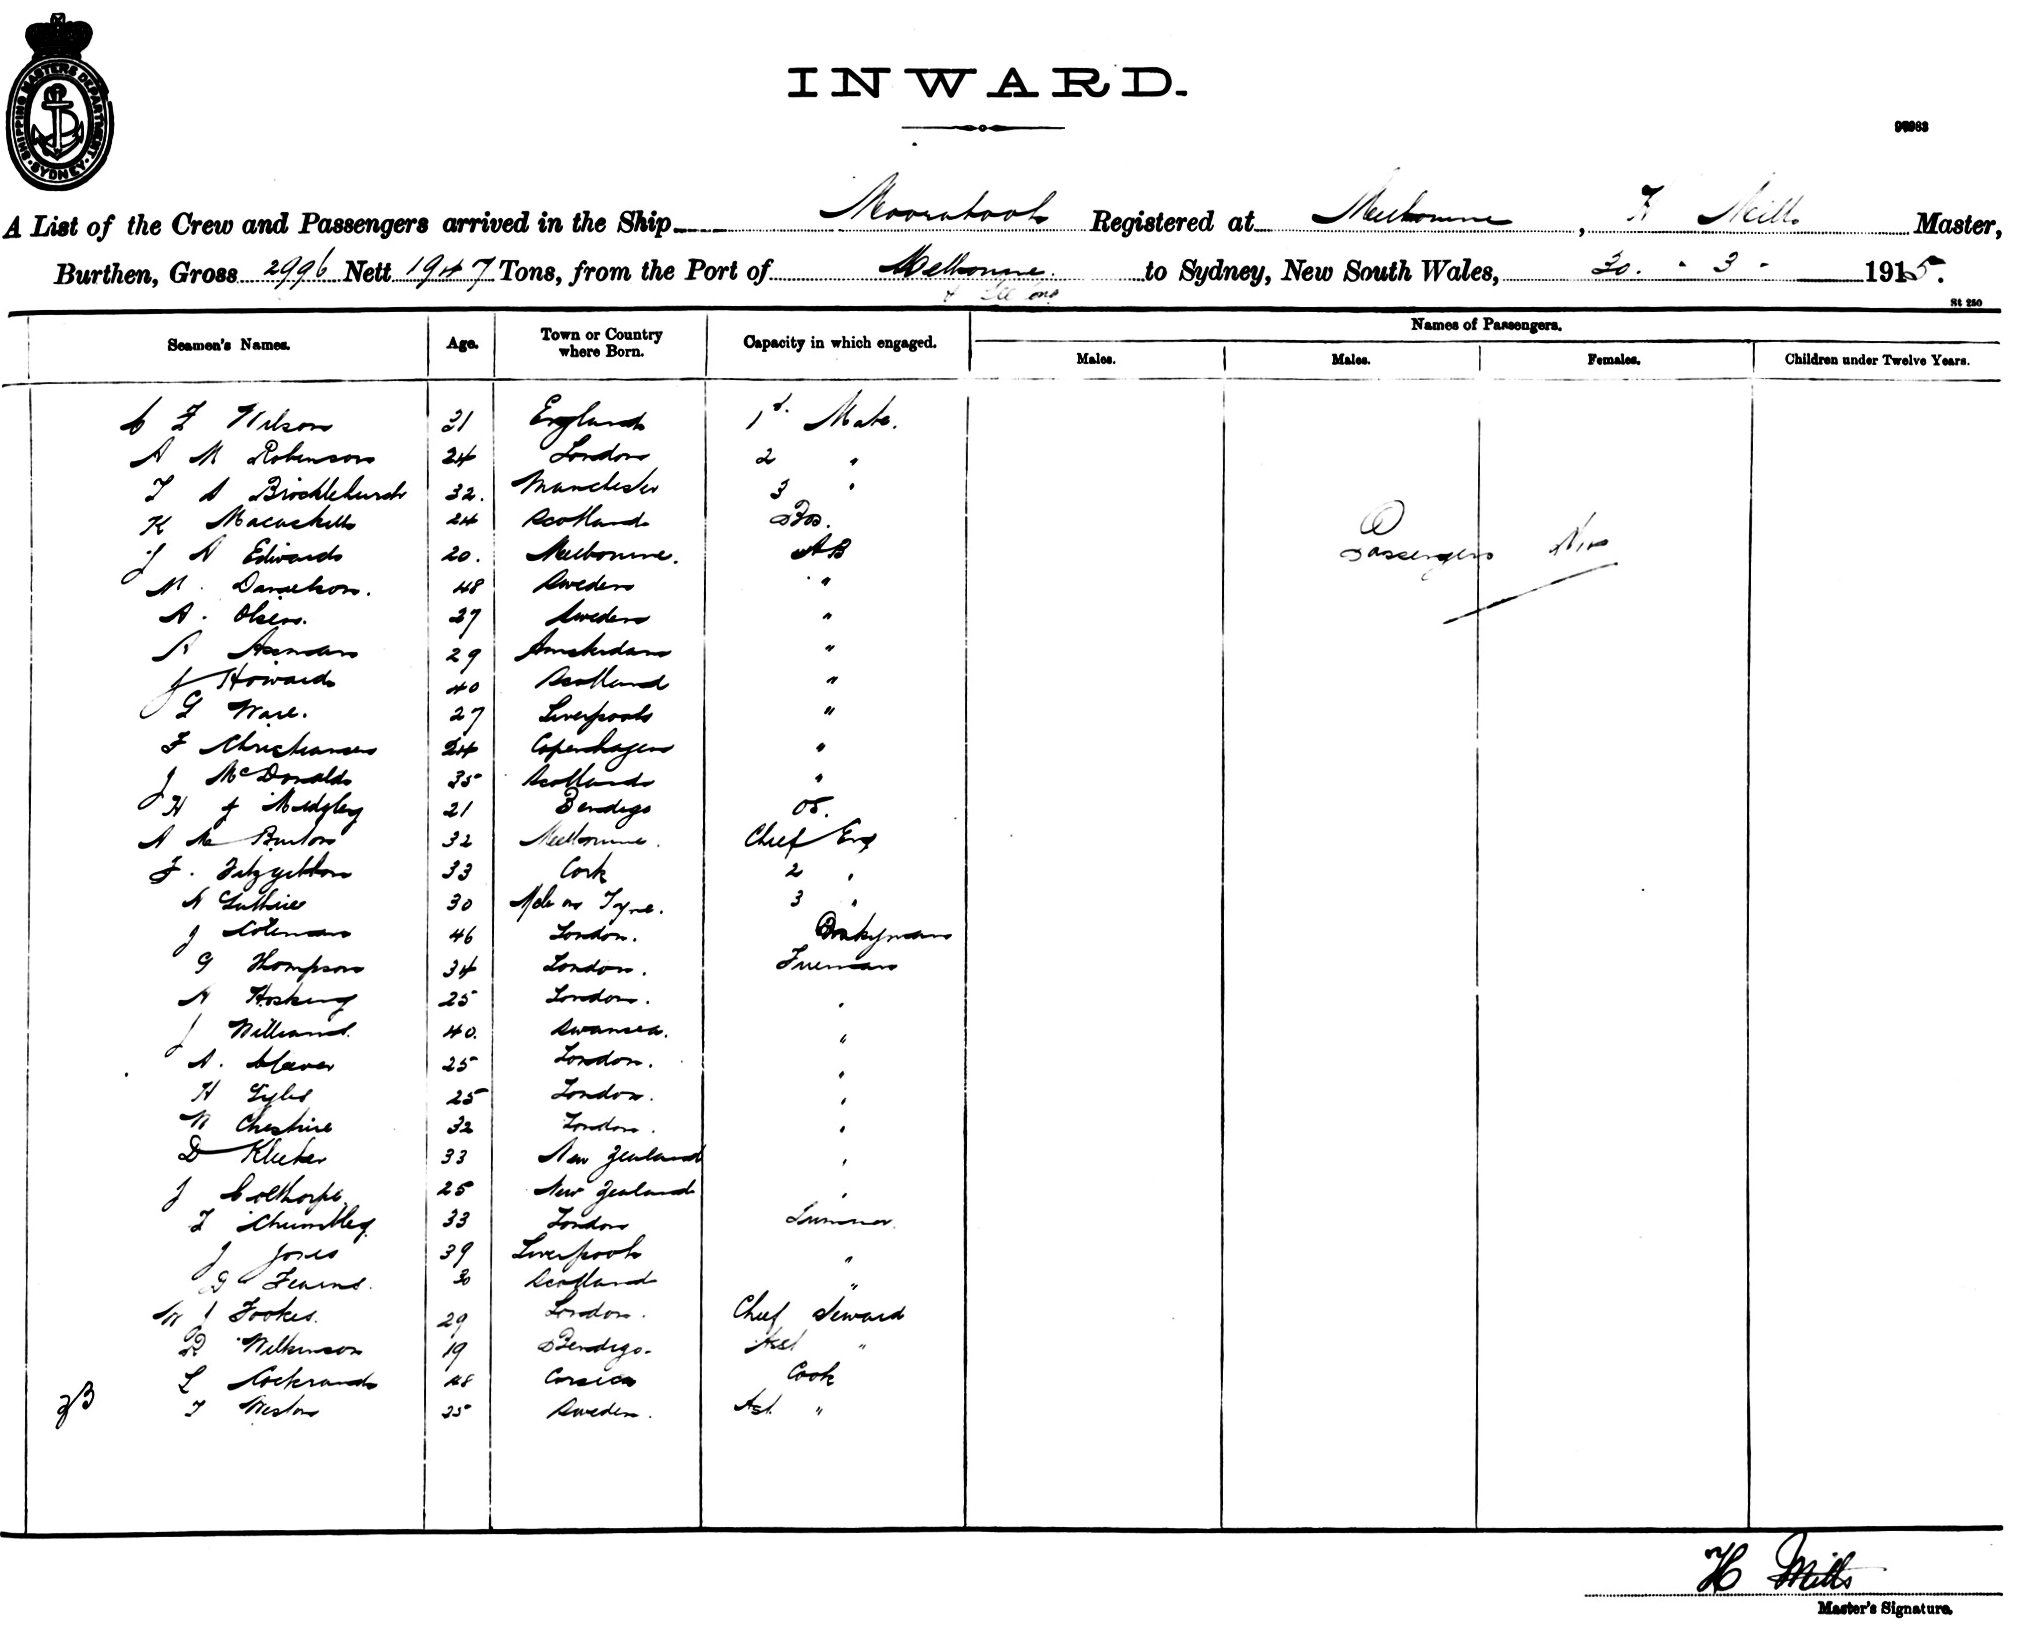 SHIPPING MASTERS DEPARTMENT SYDNEY
INWARD.
A List of the Crew and Passengers arrived in the Ship Moorabool Registered at Melbourne, H Mills Master,
Burthen, Gross 2996 Nett 1947 Tons, from the Port of Melbourne to Sydney, New South Wales, 30 - 3 - 1915.
St 250
Seamen's Names. Age. Town or Country where Born. Capacity in which engaged. Names of Passengers.
Males. Males. Females. Children under Twelve Years.
C F Wilson 31 England 1st Mate.
A M Robinson 24 London 2 "
T A Brocklehurst 32. Manchester 3 "
K Macaskill 24 Scotland Bos.
J A Edwards 20. Melbourne. AB
M. Danielson. 48 Sweden "
A. Olsen. 27 Sweden "
A 29 Amsterdam "
J Howard 40 Scotland "
G Ware. 27 Liverpool "
F Christiansen 24 Copenhagen "
J McDonald 35 Scotland "
H J Midgley 21 Bendigo OS.
A Mc Burton 32 Melbourne. Chief Eng
F. Fitzgibbon 33 Cork 2 "
A Guthrie 30 N/cle on Tyne. 3 "
J Coleman 46 London. Donkyman
G Thompson 34 London. Fireman
A Hosking 25 London. "
J Williams. 40. Swansea. "
A. 25 London. "
H Gyles 25 London. "
W Cheshire 32 London. "
D 33 New Zealand "
J Colthorpe 25 New Zealand "
T Chumbley 33 London Trimmer
J Jones 39 Liverpool "
G Fearns. 30 Scotland "
W J Fookes. 29 London. Chief Steward
R Wilkinson 19 Bendigo. Asst "
L 48 Corsica Cook
T Weston 25 Sweden. Ast. "
Passengers Nil
H Mills
Master's Signature.